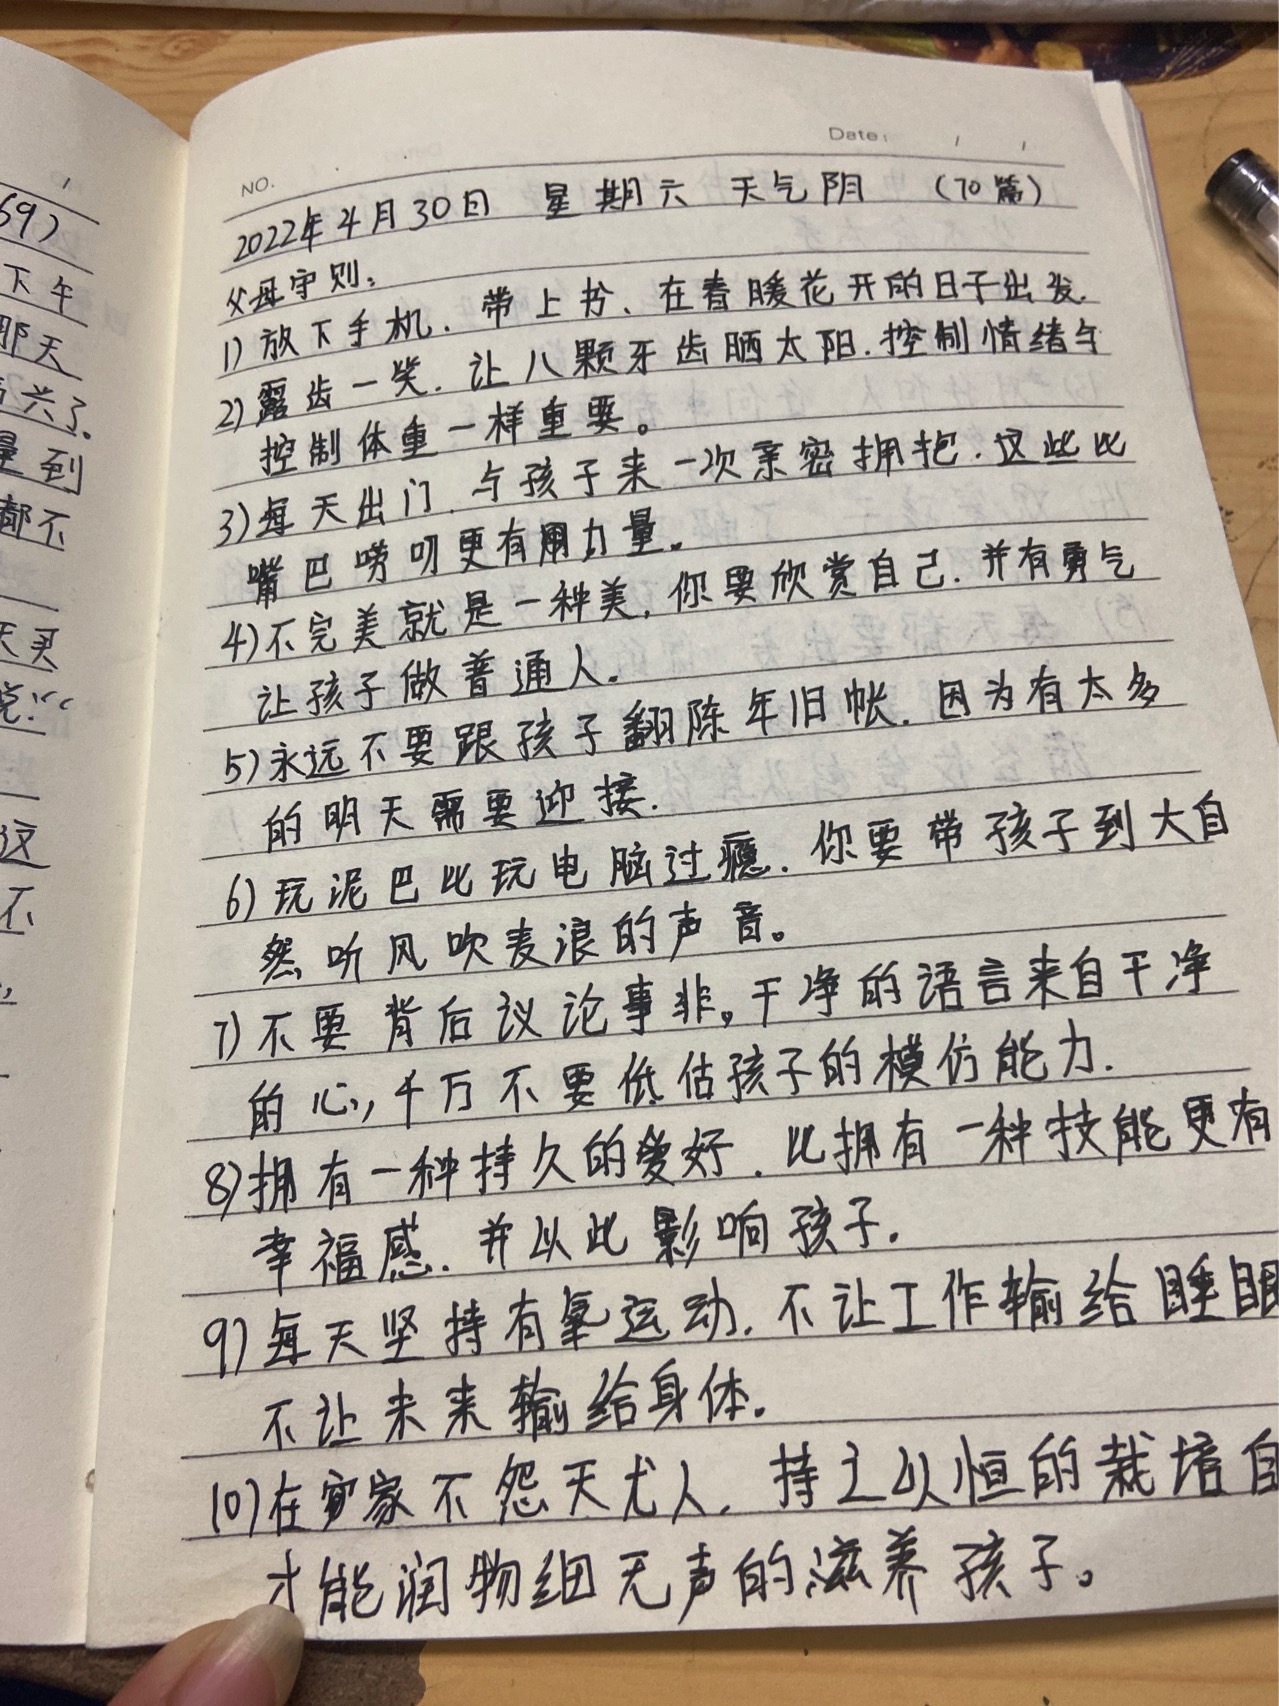 69)
下午
那天
兴了.
量到
都不
天买
这
不
NO.
Date: / /
2022年4月30日 星期六 天气阴 (70篇)
父母守则:
1) 放下手机. 带上书、在春暖花开的日子出发.
2) 露齿一笑. 让八颗牙齿晒太阳. 控制情绪与
控制体重一样重要。
3) 每天出门. 与孩子来一次亲密拥抱. 这些比
嘴巴唠叨更有用力量。
4) 不完美就是一种美. 你要欣赏自己. 并有勇气
让孩子做普通人.
5) 永远不要跟孩子翻陈年旧帐. 因为有太多
的明天需要迎接.
6) 玩泥巴比玩电脑过瘾. 你要带孩子到大自
然听风吹麦浪的声音。
7) 不要背后议论事非。干净的语言来自干净
的心, 千万不要低估孩子的模仿能力.
8) 拥有一种持久的爱好. 比拥有一种技能更有
幸福感. 并以此影响孩子.
9) 每天坚持有氧运动. 不让工作输给睡眠
不让未来输给身体.
10) 在家不怨天尤人. 持之以恒的栽培自
才能润物细无声的滋养孩子。